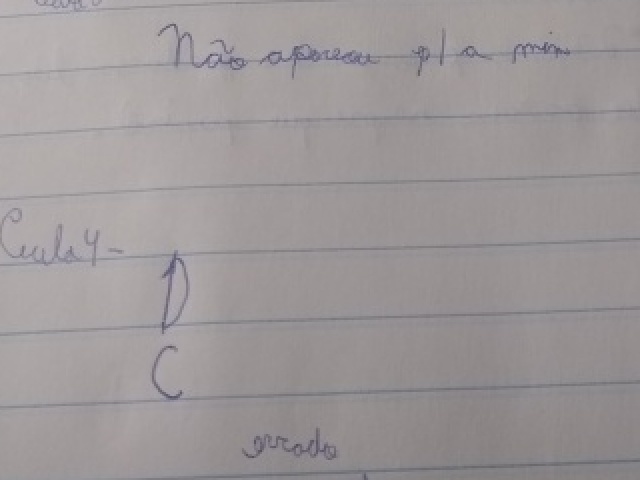 Não apareceu p/ a mim
Aula 4-
D
C
errado